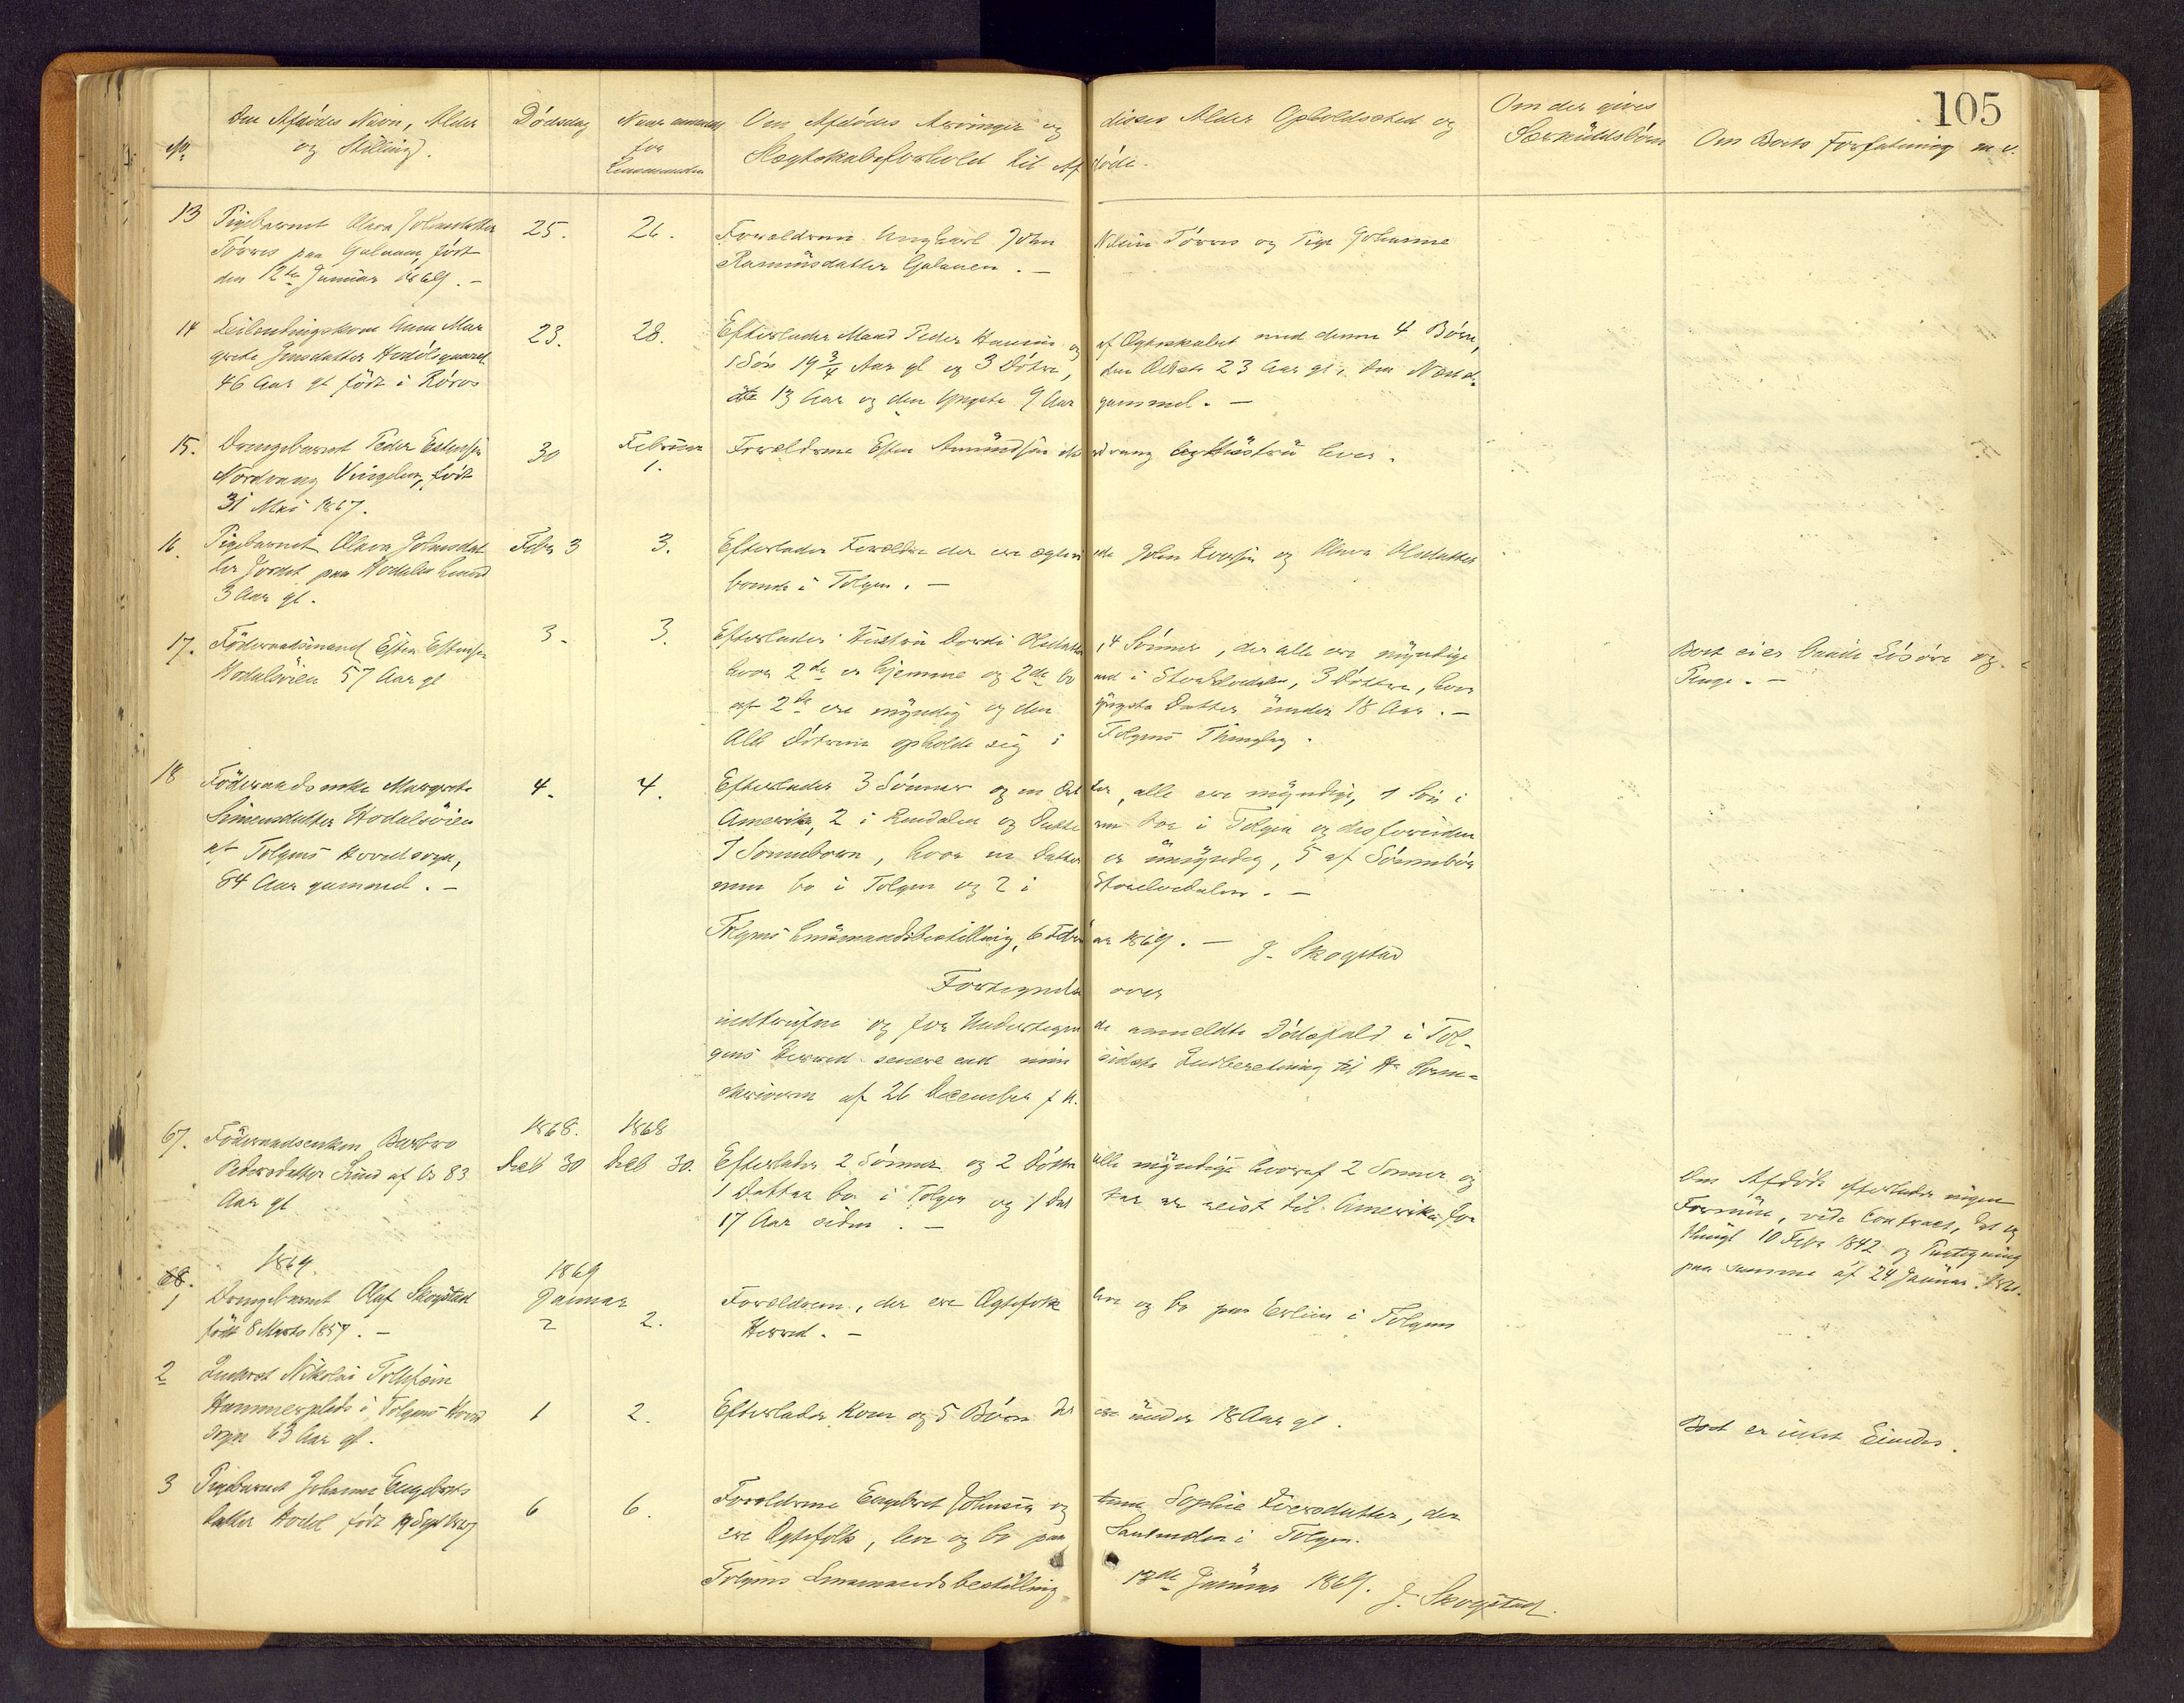 105
No
Den Afdødes Navn, Alder
og Stilling.
Dødsdag
Naar anmeldt
for
Lensmanden
Om Afdødes Arvinger og disses Alder Opholdssted og
Slægtskabsforhold til Afdøde.
Om der gives
Særkuldsbörn
Om Boets Forfatning m. v.
13 Pigebarnet Olava Johnsdatter
Tørres paa Galaaen, født
den 12te Januar 1869. -
25.
26.
Forældrene Ungkarl John Nilsen Tørres og Pige Johanne
Rasmusdatter Galaaen. -
14 Leilendingskone Anne Mar
grete Jensdatter Hodølsgaard
46 Aar gl født i Røros
23.
28.
Efterlader Mand Peder Hansen og af Ægteskabet med denne 4 Børn,
1 Søn 19 3/4 Aar gl og 3 Døtre, den Ældste 23 Aar gl, den Næst
13 Aar og den Yngste 9 Aar gammel. -
15. Drengebarnet Peder Estensen
Nordvang Vingelen, født
31 Mai 1867.
30
Februar
1.
Forældrene Esten Amundsen Nordvang og Hustru lever.
16. Pigebarnet Olava Johnsdat
ter Jordet paa Hodalen
3 Aar gl.
Febr 3
3.
Efterlader Forældre der ere ægteviede John Iversen og Olava Olsdatter
boende i Tolgen. -
17. Föderaadsmand Esten Estensen
Hodalsöien 57 Aar gl
3.
3.
Efterlader Hustru Dordi Olsdatter, 4 Sönner, der alle ere myndige
hvoraf 2de er hjemme og 2de boende i Storelvedalen, 3 Döttre, hvor
af 2de ere myndig og den yngste Datter under 18 Aar. -
Alle Døtrene opholde sig i Tolgens Thinglag.
Boet eier baade Løsøre og
Penge. -
18 Föderaadsenke Margrete
Simensdatter Hodalsöien
af Tolgens Hovedsogn,
84 Aar gammel. -
4.
4.
Efterlader 3 Sønner og en Datter, alle ere myndige, 1 Søn i
Amerika, 2 i Rendalen og Datteren boe i Tolgen og desforuden
7 Sønnebørn, hvor en Datter er umyndig, 5 af Sönnebör
nene bo i Tolgen og 2 i Storelvedalen. -
Tolgens Lensmandsbestilling, 6 Februar 1869. - J. Skogstad
Fortegnelse over
indtrufne og for Undertegnede anmeldte Dödsfald i Tol-
gens Herred senere end min sidste Indberetning til Hr Soren-
skriveren af 26 December f A.
67. Föderaadsenken Barbro
Pedersdatter Lund af Os 83
Aar gl
1868.
Decb 30
1868
Decb 30.
Efterlader 2 Sønner og 2 Døttre alle myndige hvoraf 2 Sønner og
1 Datter bo i Tolgen og 1 Datter er reist til Amerika for
17 Aar siden. -
Den Afdøde efterlader ingen
Formue, vide Contract, dat og
thingl 10 Febr 1842 og Paategning
paa samme af 24 Januar
1869.
68.
1 Drengebarnet Olaf Skogstad
født 8 Marts 1857. -
1869
Januar
2
2.
Forældrene, der ere Ægtefolk leve og bo paa Erlien i Tolgens
Herred. -
2 Inderst Nikolai Tollefsen
Hammerplads i Tolgens Hoved
sogn 63 Aar gl.
1
2.
Efterlader Kone og 5 Børn der ere under 18 Aar gl.
Boet er intet Eiendes.
3 Pigebarnet Johanne Engebrets
datter Hodal født 19 Septbr
6
6.
Forældrene Engebret Johnsen og Sophie Iversdatter, der
ere Ægtefolk, leve og bo paa i Tolgen.
Tolgens Lensmandsbestilling 13de Januar 1869. J. Skogstad.